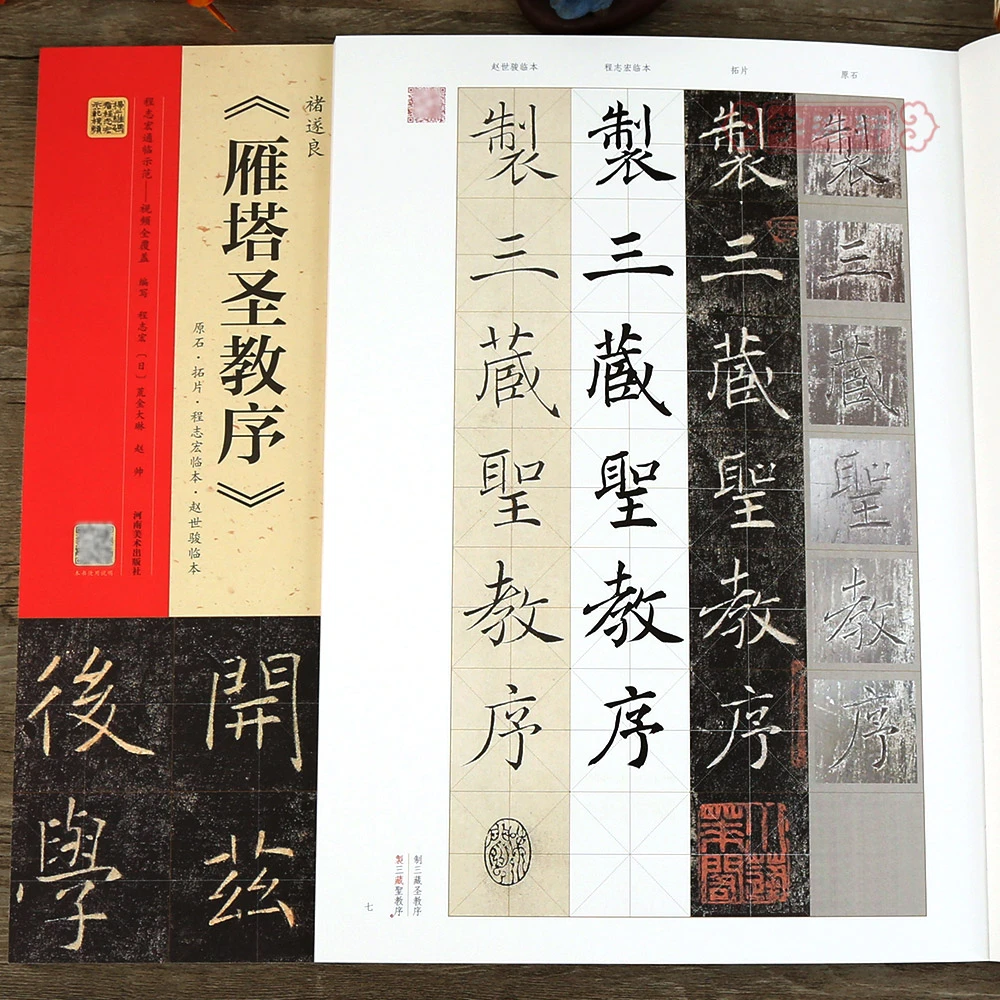 褚遂良
《雁塔圣教序》
原石·拓片·程志宏临本·赵世骏临本
程志宏通临示范——视频全覆盖 编写 程志宏
赵 帅
河南美术出版社
本书使用说明
開茲
後學
原石
拓片
程志宏临本
赵世骏临本
製三蔵聖教序
製三蔵聖教序
製三蔵聖教序
製三蔵聖教序
制三藏圣教序
製三藏聖教序。
七